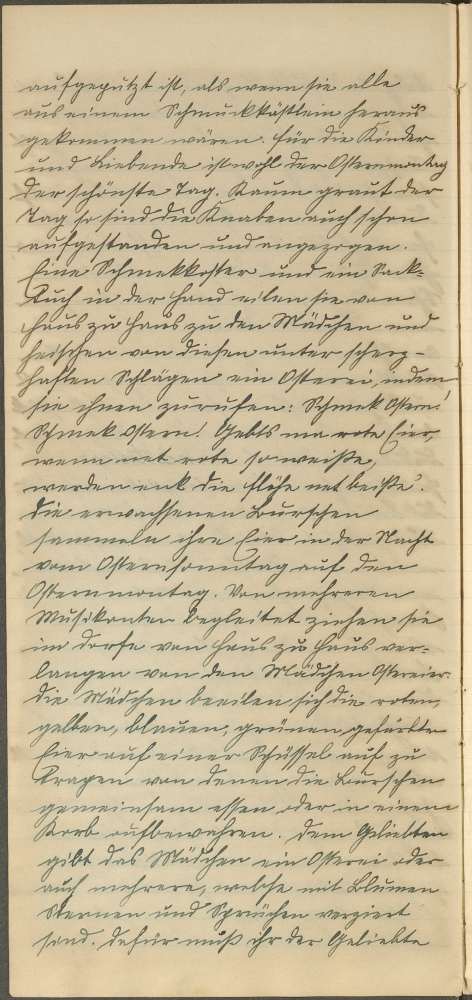 aufgeputzt ist, als wenn sie alle
aus einem Schmuckkästlein heraus
gekommen wären. Für die Kinder
und Liebende ist wohl der Osternmontag
der schönste Tag. Kaum graut der
Tag so sind die Knaben auch schon
aufgestanden und angezogen.
Eine Schmekkoster und ein Sack-
tuch in der Hand eilen sie von
Haus zu Haus zu den Mädchen und
heischen von diesen unter scherz-
haften Schlägen ein Osterei, indem
sie ihnen zurufen: Schmek Ostern!
Schmek Ostern! Gebts ma rote Eier,
wenn net rote so weiße,
werden enk die Flöhe net beiße.
Die erwachsenen Burschen
sammeln ihre Eier in der Nacht
vom Osternsonntag auf den
Osternmontag. Von mehreren
Musikanten begleitet ziehen sie
im Dorfe von Haus zu Haus ver-
langen von den Mädchen Ostereier.
Die Mädchen beeilen sich die roten,
gelben, blauen, grünen, gefärbten
Eier auf einer Schüssel auf zu
tragen von denen die Burschen
gemeinsam essen oder in einem
Korb aufbewahren. Dem Geliebten
gibt das Mädchen ein Osterei oder
auch mehrere, welche mit Blumen
Sternen und Sprüchen verziert
sind. Dafür muß ihr der Geliebte